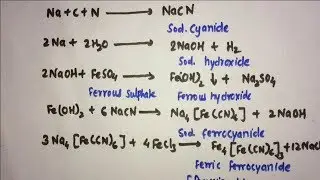 Na + C + N → NaCN
Sod. Cyanide
2Na + 2H₂O → 2NaOH + H₂
Sod. hydroxide
2NaOH + FeSO₄ → Fe(OH)₂ ↓ + Na₂SO₄
Ferrous Sulphate Ferrous hydroxide
Fe(OH)₂ + 6NaCN → Na₄[Fe(CN)₆] + 2NaOH
Sod. ferrocyanide
3Na₄[Fe(CN)₆] + 4FeCl₃ → Fe₄[Fe(CN)₆]₃ + 12NaCl
Ferric ferrocyanide